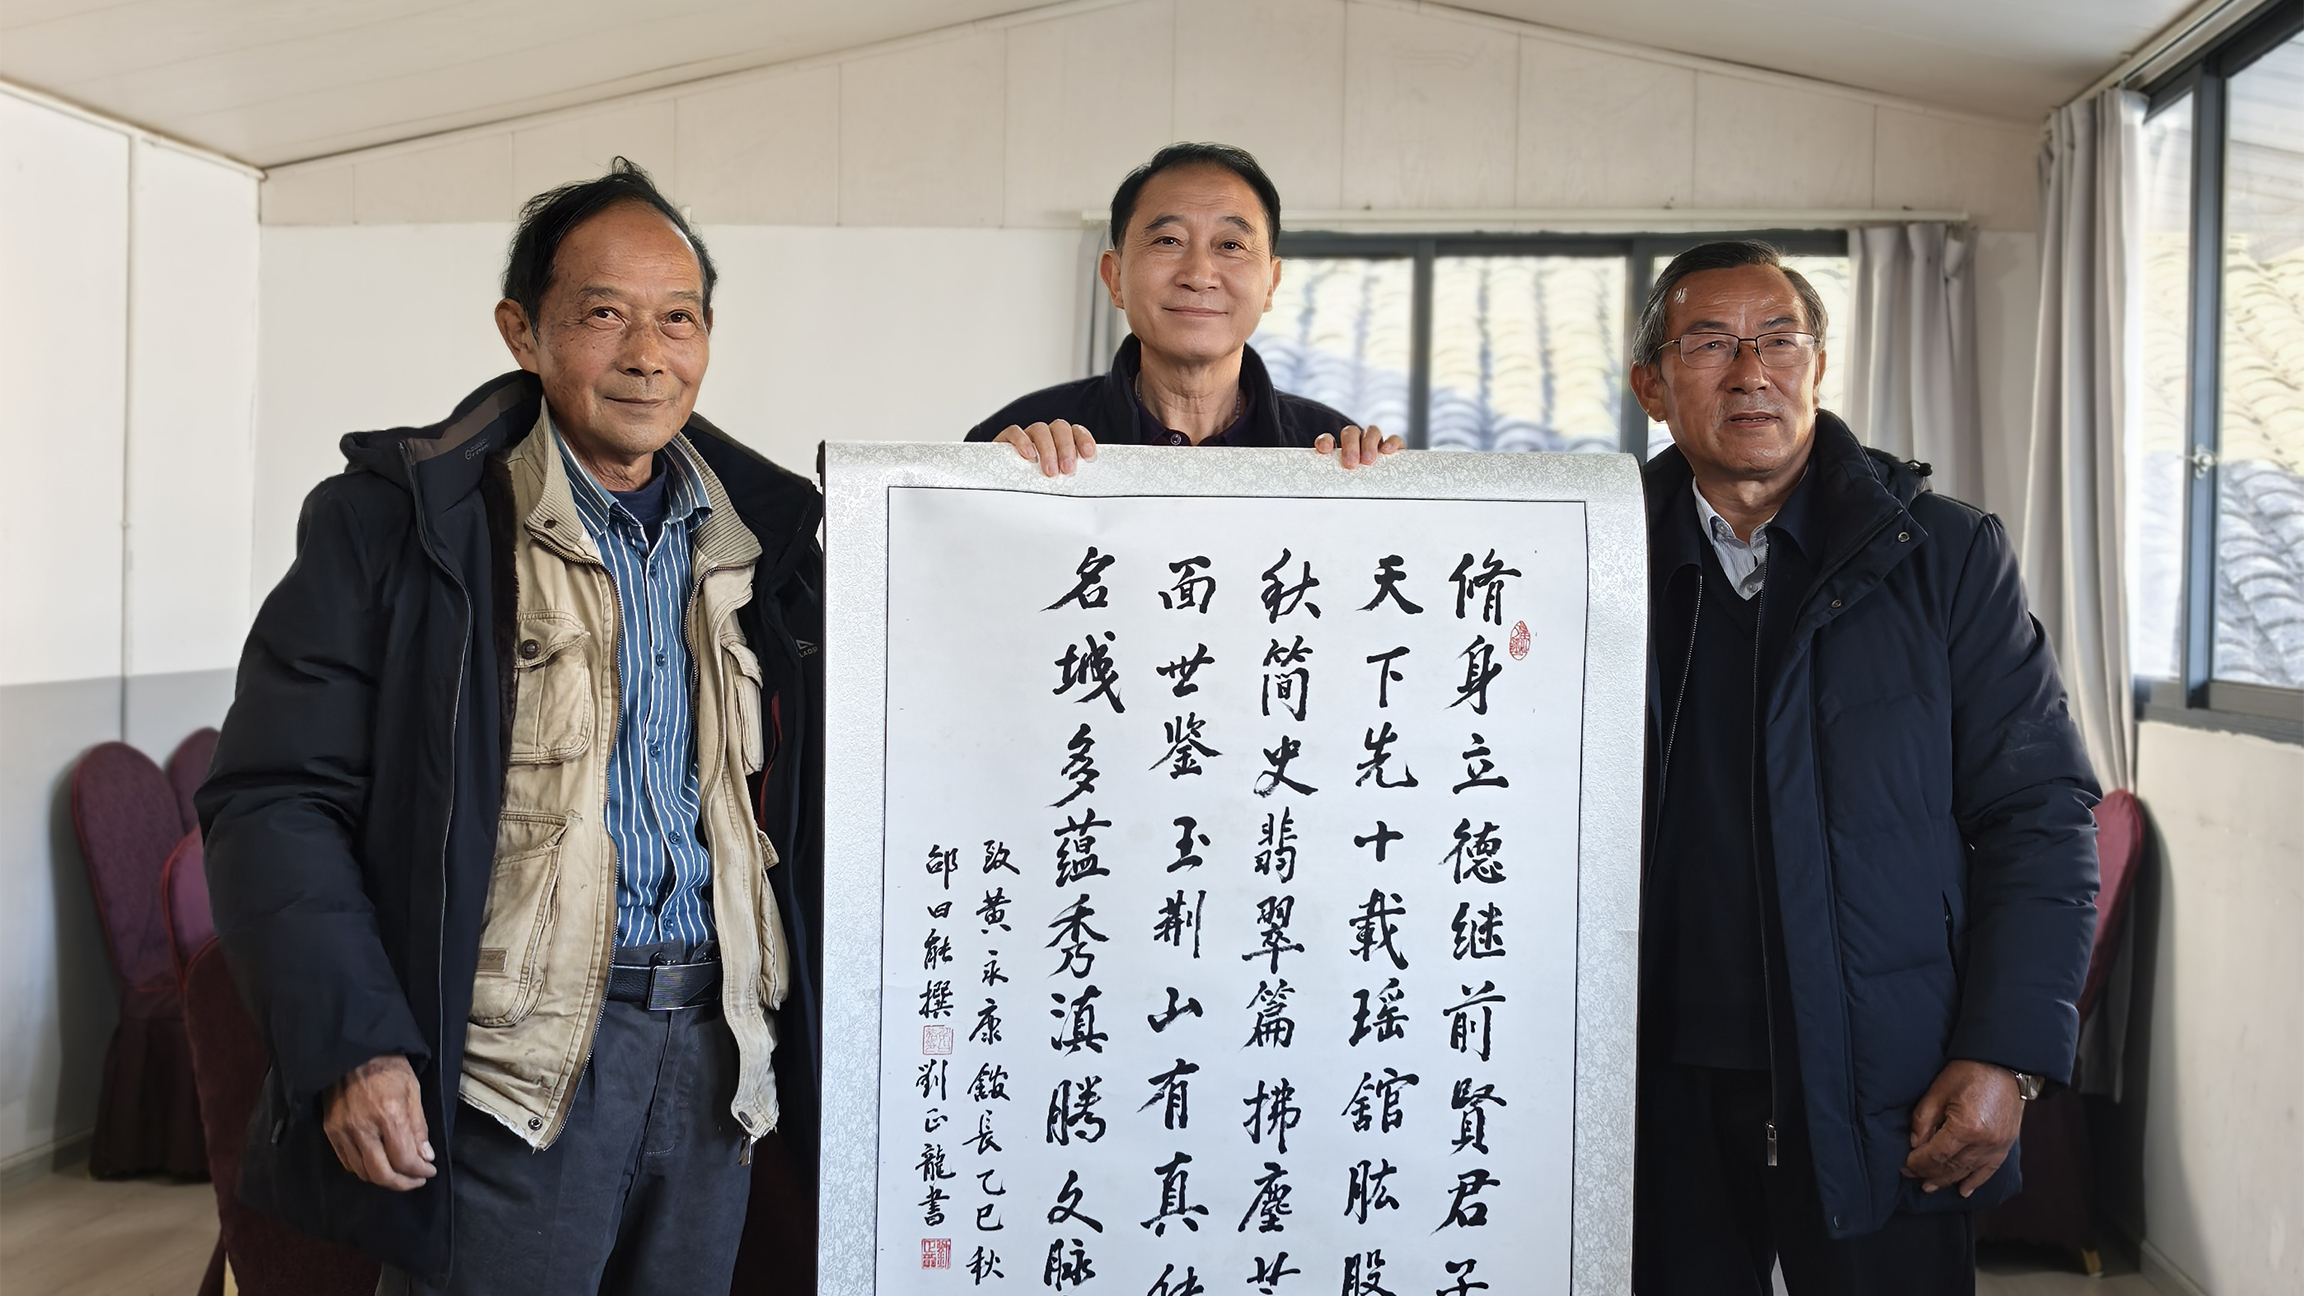 脩身立德继前賢君子
天下先十載瑶舘肱股
秋简史翡翠篇拂塵
面世鉴玉荆山有真
名城多蕴秀滇腾文脉
致黄永康館長乙巳秋
邰曰能撰
劉正龍書